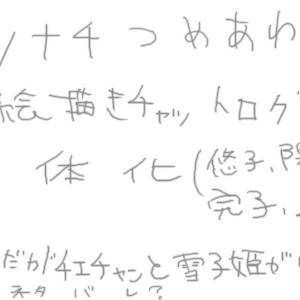 ナチつめあわ
絵描きチャットログ
体化(悠子、陽
完子、
だがチエチャンと雪子姫が
ネタバレ?